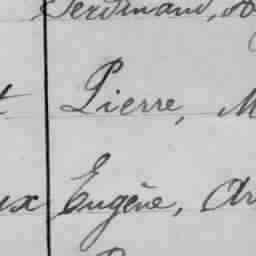 Ferdinand,
Pierre, M
ux Eugène, Ar